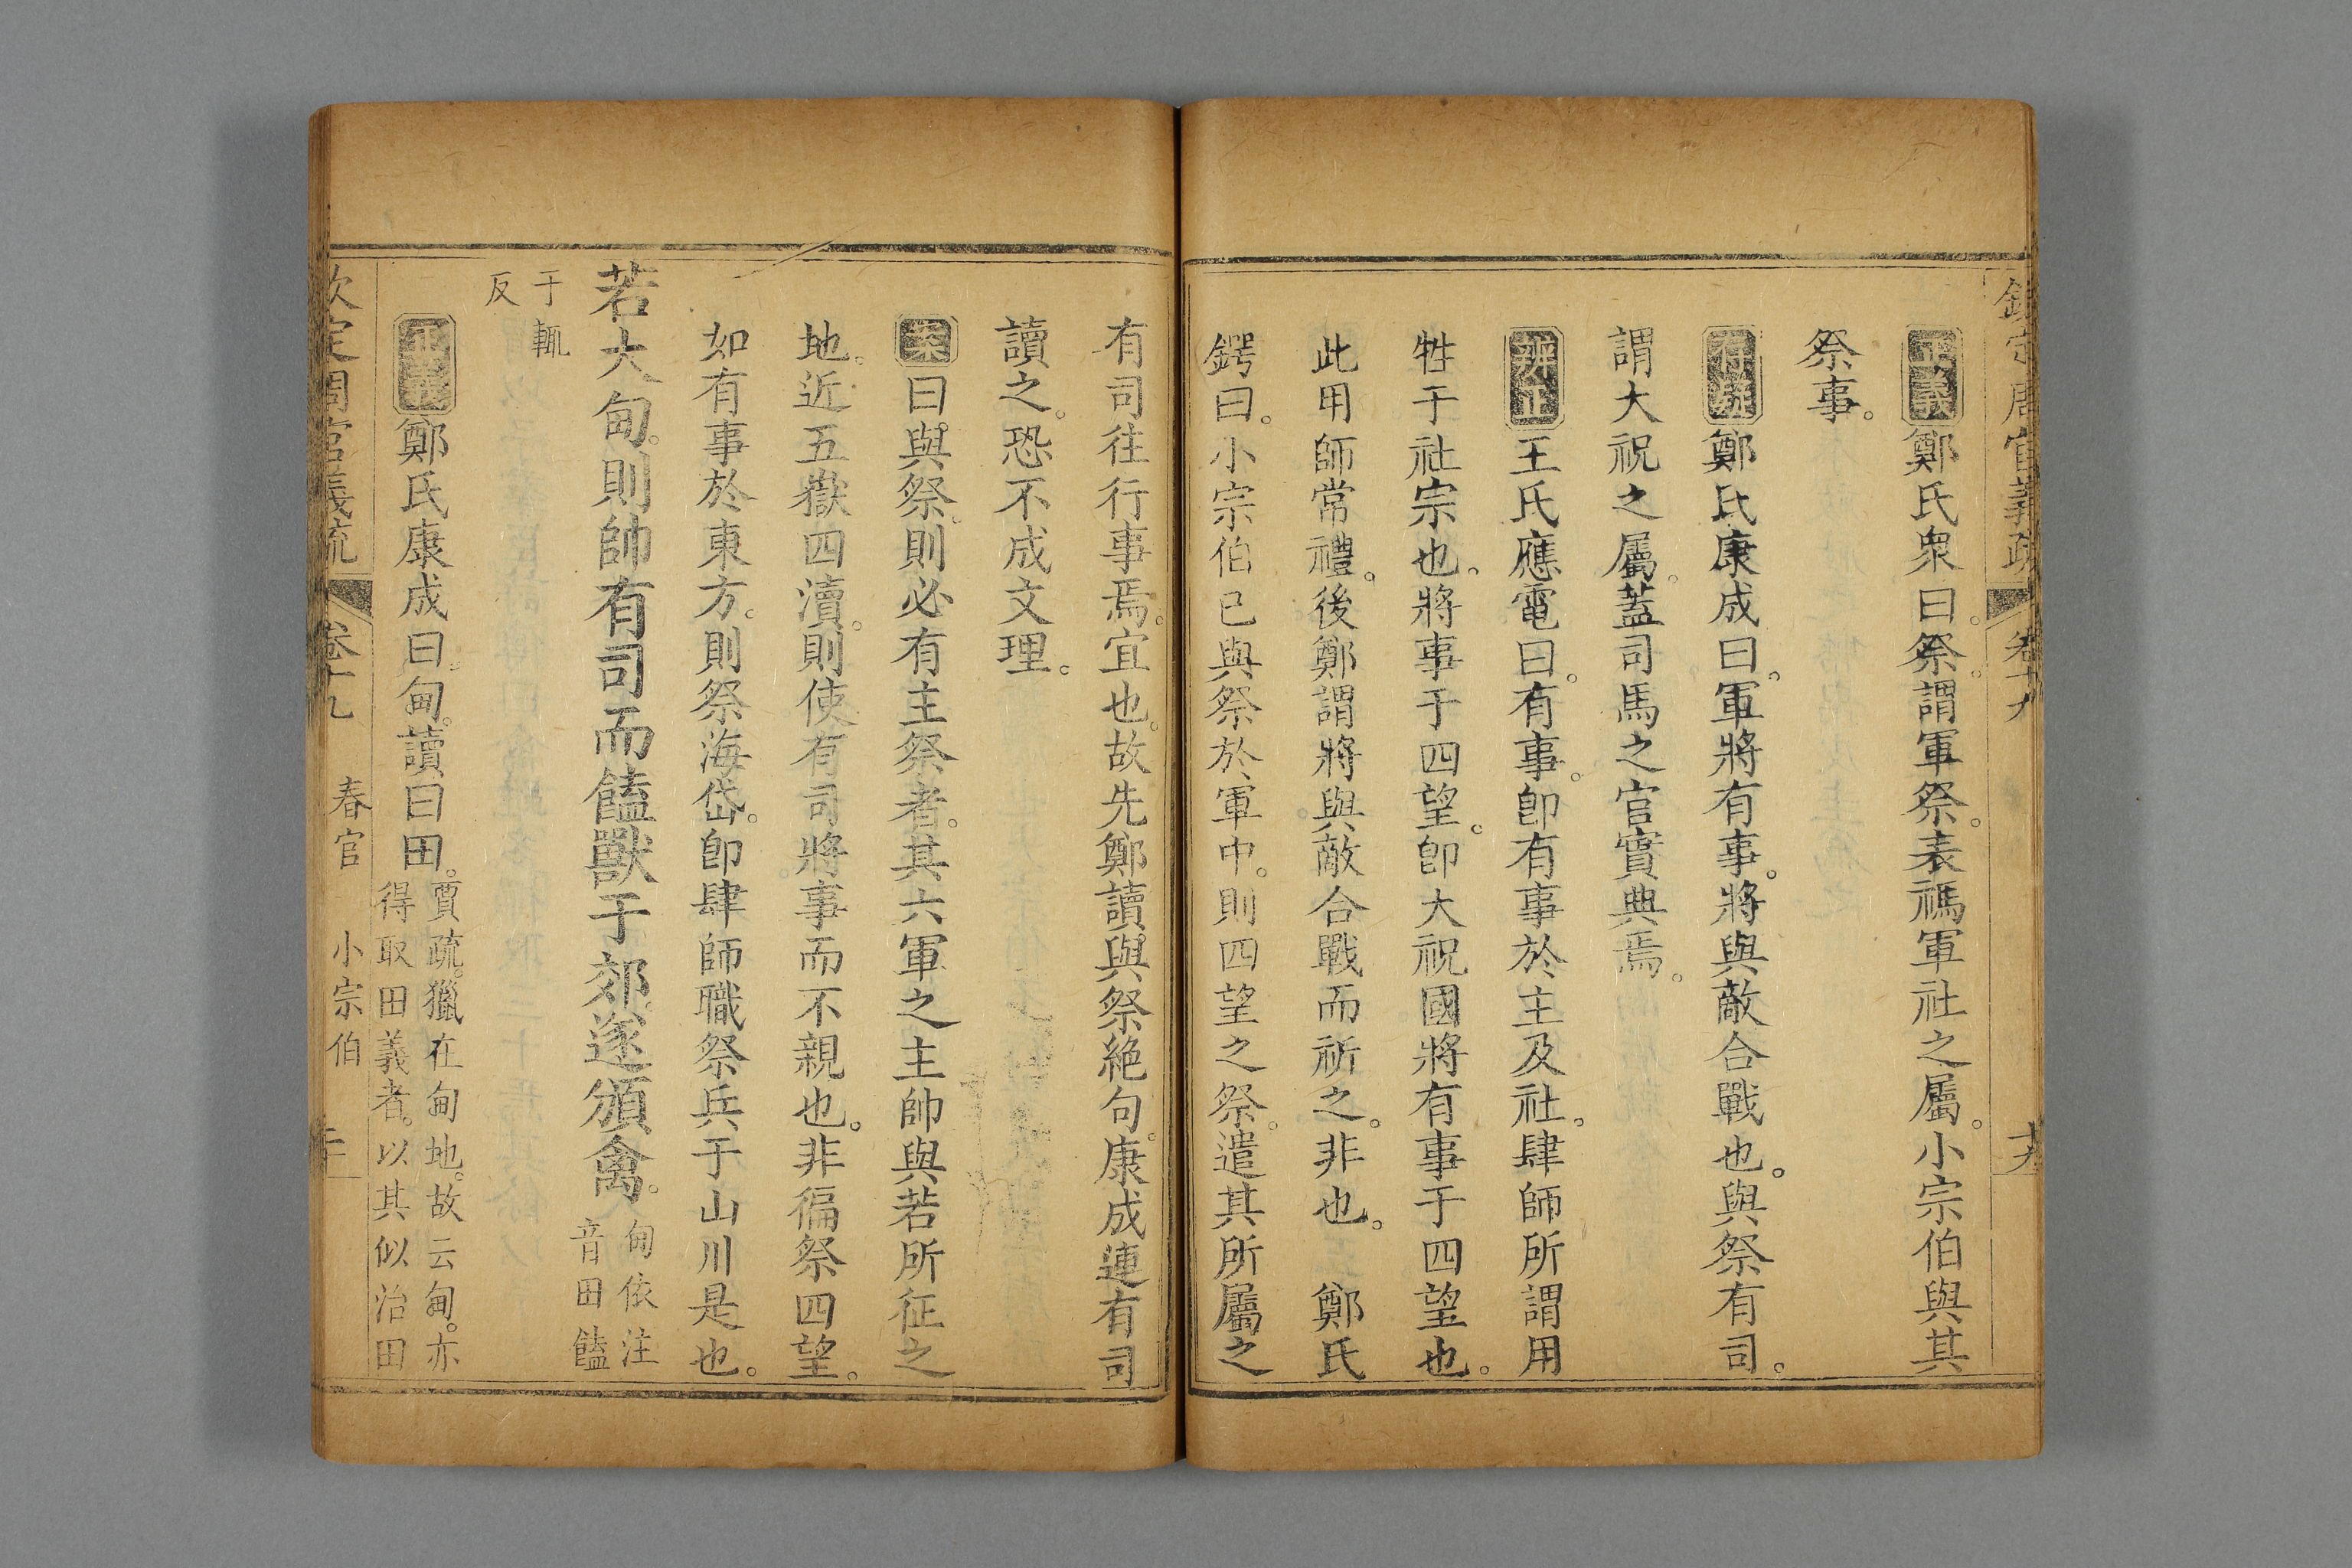 欽定周官義疏 卷十九 十九
正義鄭氏衆曰。祭。謂軍祭。表禡軍社之屬。小宗伯與其
祭事。
存疑鄭氏康成曰。軍將有事。將與敵合戰也。與祭有司。
謂大祝之屬。蓋司馬之官實典焉。
辨正王氏應電曰。有事。卽有事於主及社。肆師所謂用
牲于社宗也。將事于四望。卽大祝國將有事于四望也。
此用師常禮。後鄭謂將與敵合戰而祈之。非也。 鄭氏
鍔曰。小宗伯已與祭於軍中。則四望之祭。遣其所屬之
有司往行事焉。宜也。故先鄭讀與祭絶句。康成連有司
讀之。恐不成文理。
案曰。與祭。則必有主祭者。其六軍之主帥與若所征之
地。近五嶽四瀆。則使有司將事而不親也。非徧祭四望。
如有事於東方。則祭海岱。卽肆師職祭兵于山川是也。
若大甸。則帥有司而饁獸于郊。遂頒禽。甸依注
音田饁
于輒
反
正義鄭氏康成曰。甸。讀曰田。賈疏。獵在甸地。故云甸。亦
得取田義者。以其似治田
欽定周官義疏 卷十九 春官 小宗伯